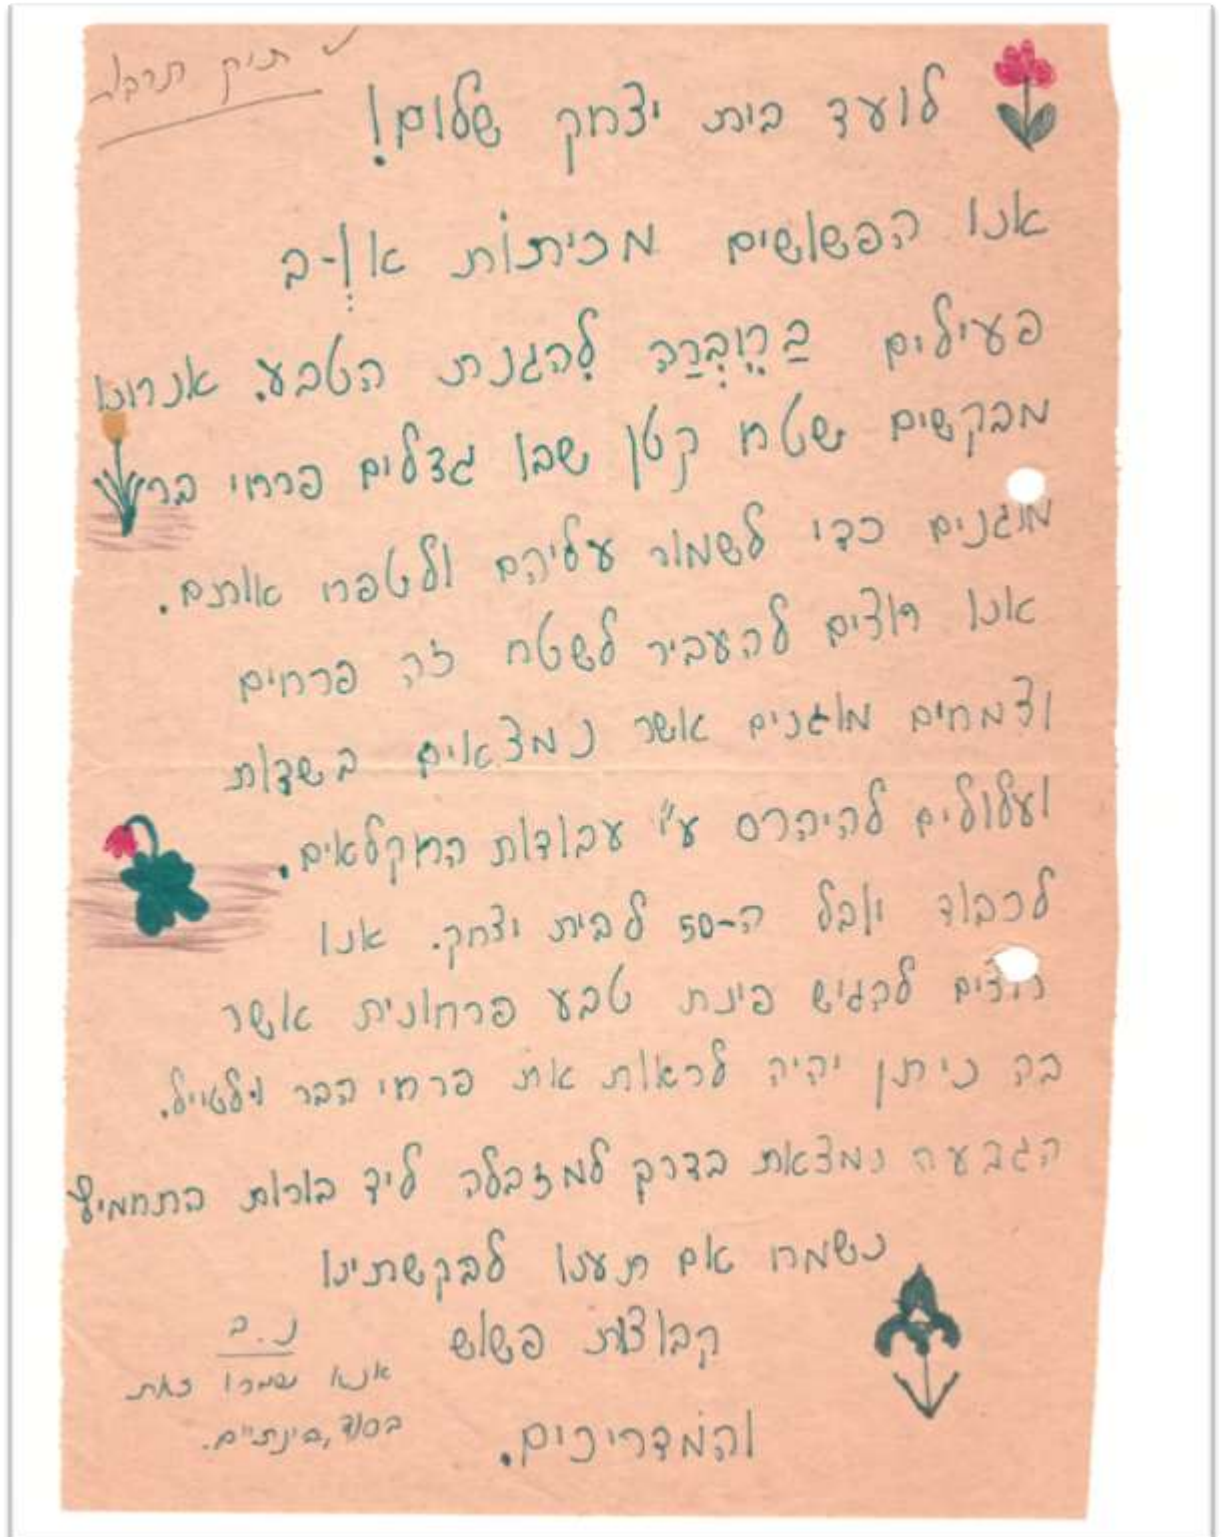 תיק תרבות
לועד בית יצחק שלום!
אנו הפשושים מכיתות א וְ-ב
פעילים בַחֶבְרַה לְהגנת הטבע. אנחנו
מבקשים שטח קטן שבו גדלים פרחי בר
מוגנים כדי לשמור עליהם ולטפח אותם.
אנו רוצים להעביר לשטח זה פרחים
וצמחים מוגנים אשר נמצאים בשדות
ועלולים להיהרס ע"י עבודות החקלאים.
לכבוד יובל ה-50 לבית יצחק. אנו
רוצים להגיש פינת טבע פרחונית אשר
בה ניתן יהיה לראות את פרחי הבר ולטייל.
הגבעה נמצאת בדרך למזבלה ליד בורות התחמיץ
נשמח אם תענו לבקשתינו
קבוצת פשוש
והמדריכים.
נ.ב
אנא שמרו זאת
בסוד, בינתיים.